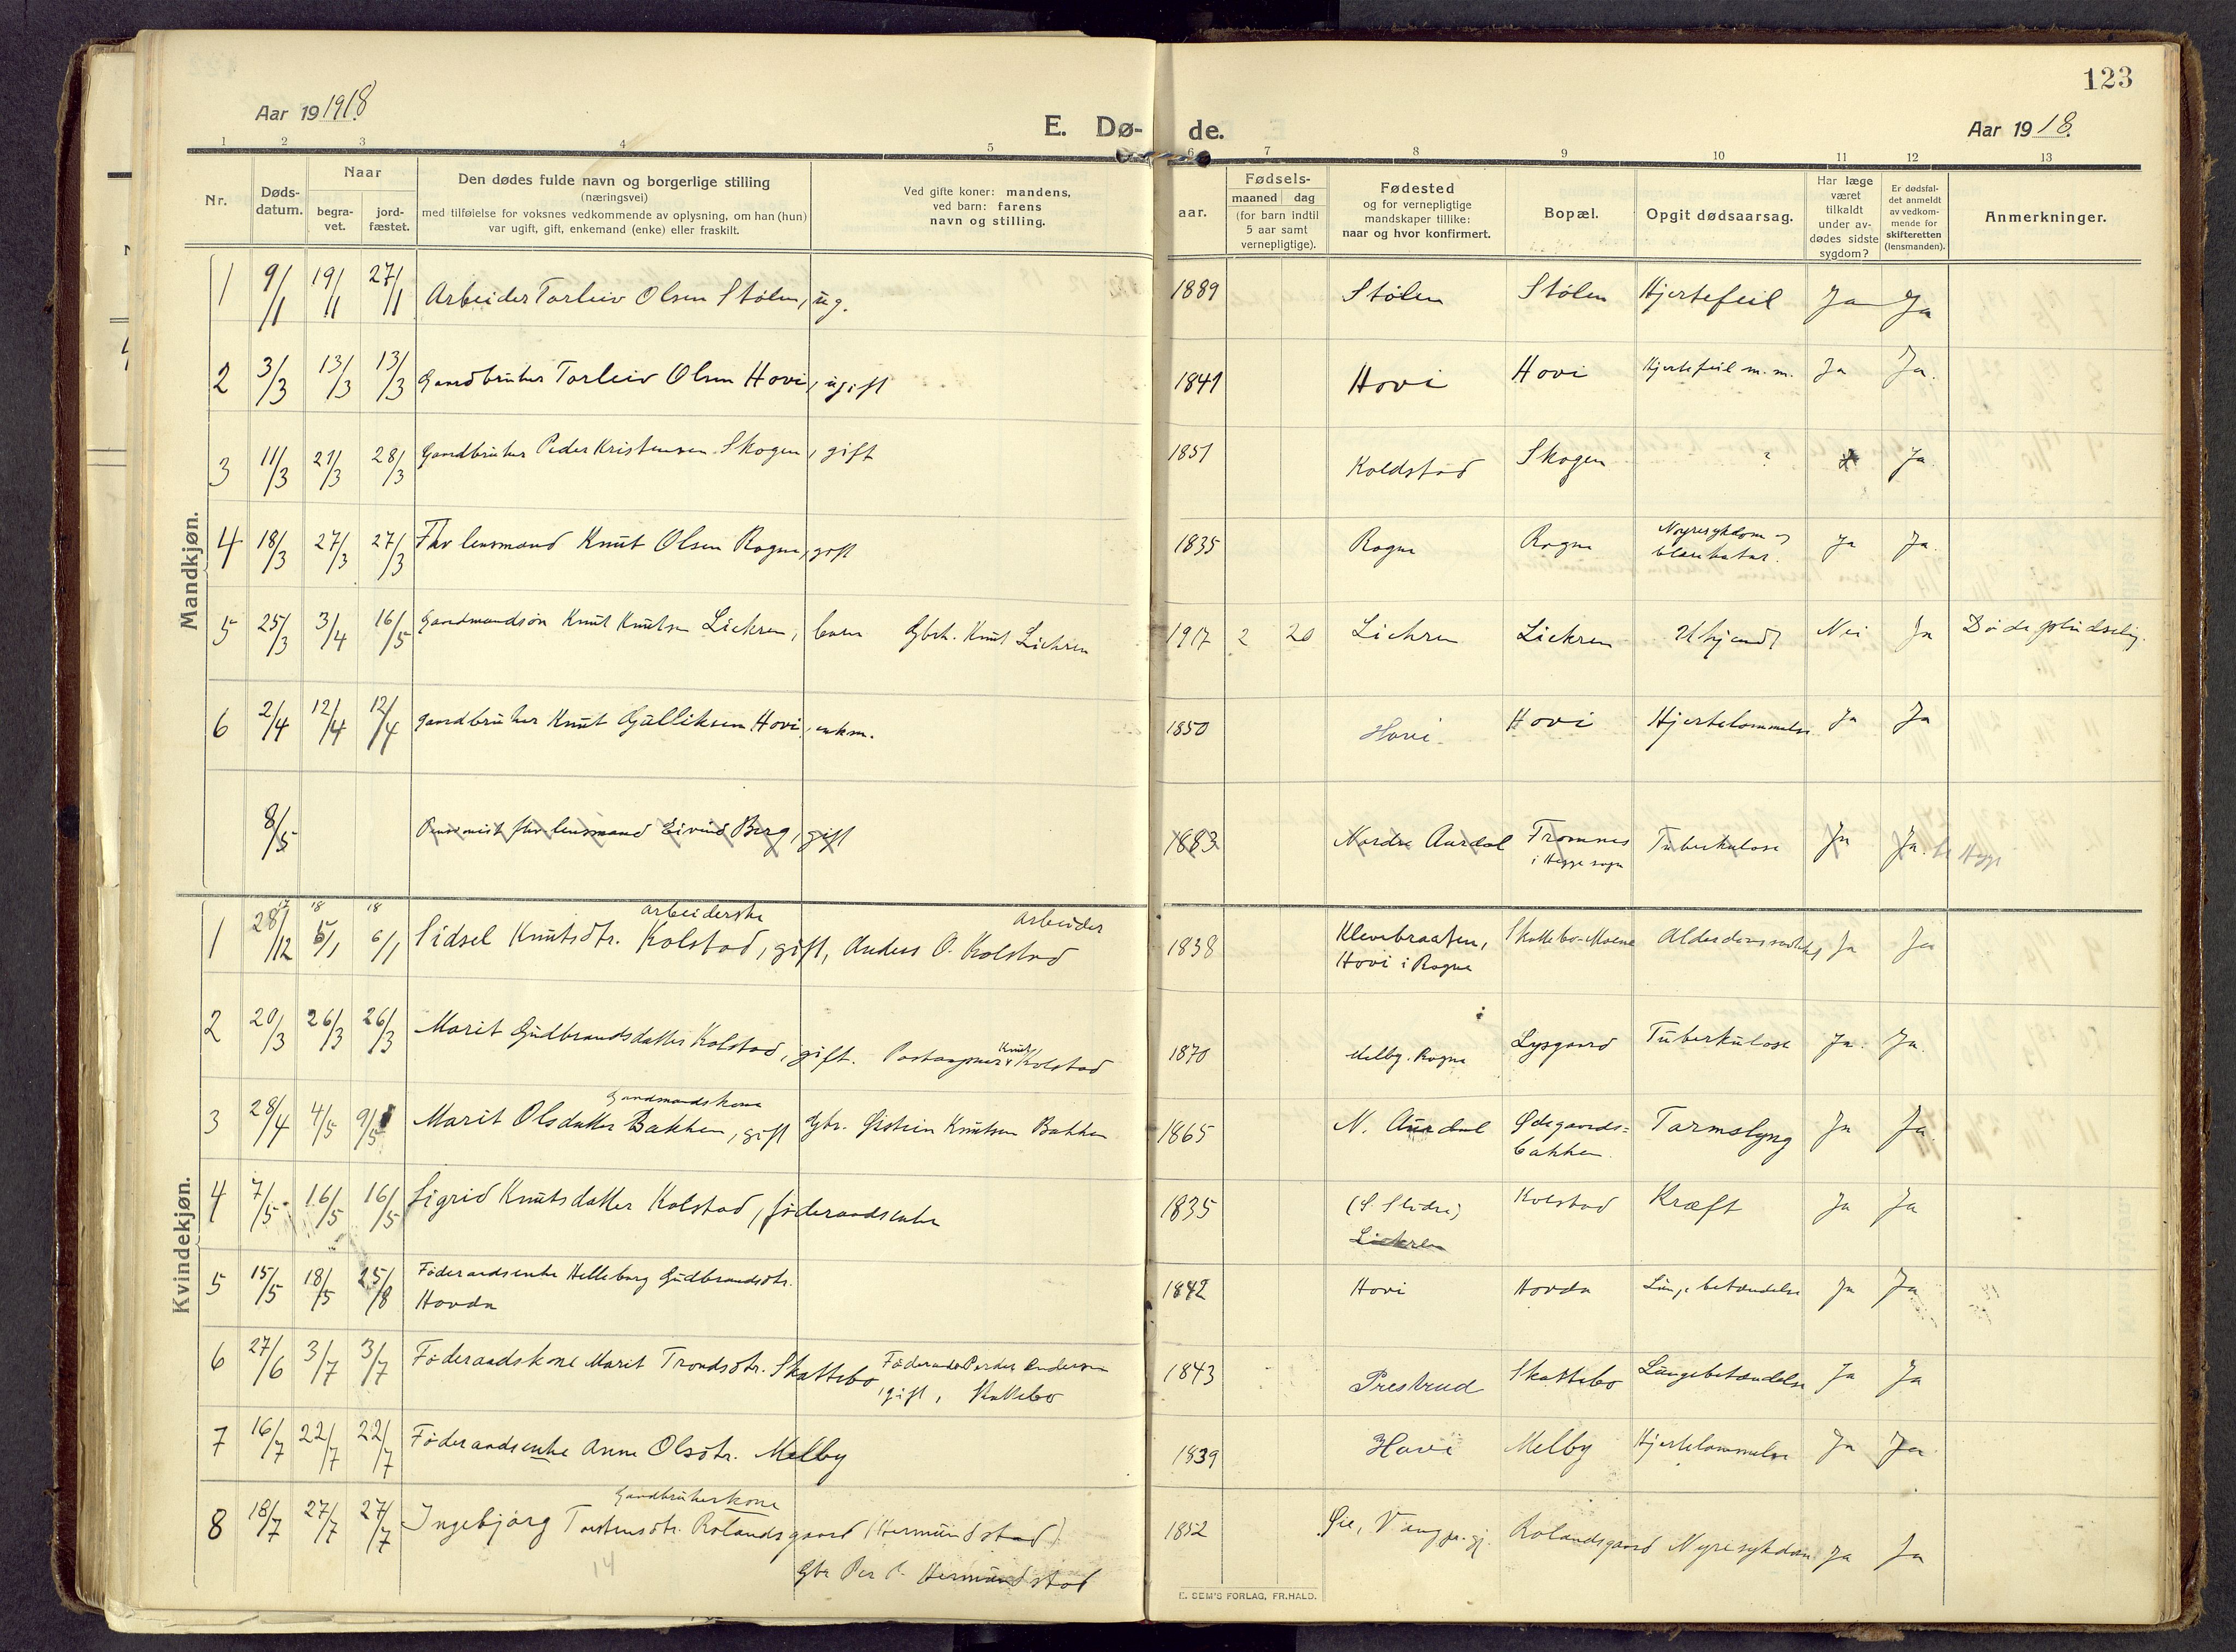 123
Aar 19 1918
E. Dø-
de.
Aar 19 18.
1 2 3 4 5 6 7 8 9 10 11 12 13
Nr.
Døds-
datum.
Naar
begra-
vet.
jord-
fæstet.
Den dødes fulde navn og borgerlige stilling
(næringsvei)
med tilføielse for voksnes vedkommende av oplysning, om han (hun)
var ugift, gift, enkemand (enke) eller fraskilt.
Ved gifte koner: mandens,
ved barn: farens
navn og stilling.
Fødsels-
aar.
maaned dag
(for barn indtil
5 aar samt
vernepligtige).
Fødested
og for vernepligtige
mandskaper tillike:
naar og hvor konfirmert.
Bopæl.
Opgit dødsaarsag.
Har læge
været
tilkaldt
under av-
dødes sidste
sygdom?
Er dødsfal-
det anmeldt
av vedkom-
mende for
skifteretten
(lensmanden).
Anmerkninger.
Mandkjøn.
1 9/1 19/1 27/1 Arbeider Torleiv Olsen Stølen, ug. 1889 Stølen Stølen Hjertefeil Ja Ja
2 3/3 13/3 13/3 Gaardbruker Torleiv Olsen Hovi, ugift 1841 Hovi Hovi Hjertefeil m.m. Ja Ja.
3 11/3 21/3 28/3 Gaardbruker Peder Kristensen Skogen, gift 1851 Koldstad Skogen ? Ja
4 18/3 27/3 27/3 Fhv lensmand Knut Olsen Rogne, gift 1835 Rogne Rogne Nyresykdom og
blærekatar. Ja Ja.
5 25/3 3/4 16/5 Gaardmandsøn Knut Knutsen Liekren, barn Gbrk. Knut Liekren 1917 2 20 Liekren Liekren Ukjendt Nei Ja Døde pludselig.
6 2/4 12/4 12/4 Gaardbruker Knut Gulliksen Hovi, enkm. 1850 Hovi Hovi Hjertelammelse Ja Ja
8/5 Pensionist fhv lensmand Eivind Berg, gift 1883 Nordre Aurdal Tromnes
i Hegge sogn Tuberkulose Ja Ja. Hegge
Kvindekjøn.
17 18 18 arbeiderske arbeider
1 28/12 5/1 6/1 Sidsel Knutsdtr. Kolstad, gift, Anders O. Kolstad 1838 Klevebraaten,
Hovi i Rogne Skattebo-Moene Alderdomssvakhet Ja Ja
2 20/3 26/3 26/3 Marit Gudbrandsdatter Kolstad, gift. Postaapner Knut Kolstad 1870 Melby. Rogne Lysgaard Tuberkulose Ja. Ja.
Gaardmandskone
3 28/4 4/5 9/5 Marit Olsdatter Bakken, gift Gbr. Øistein Knutsen Bakken 1865 N. Aurdal Ødegaards-
bakken. Tarmslyng Ja Ja.
4 7/5 16/5 16/5 Sigrid Knutsdatter Kolstad, føderaadsenke 1835 (S. Slidre)
Liekren Kolstad Kræft Ja Ja
5 15/5 18/5 25/8 Føderaadsenke Helleborg Gudbrandsdtr.
Hovda 1842 Hovi Hovda Lungebetændelse Ja Ja
6 27/6 3/7 3/7 Føderaadskone Marit Trondsdtr. Skattebo, gift, Føderaads Peder Andersen
Skattebo 1843 Prestrud Skattebo Lungebetændelse Ja Ja
7 16/7 22/7 22/7 Føderaadsenke Anne Olsdtr. Melby 1839 Hovi Melby Hjertelammelse Ja Ja
Gaardbrukerkone
8 18/7 27/7 27/7 Ingebjørg Torstensdtr. Rolandsgaard (Hermundstad)
Gbr Per P. Hermundstad 1852 Øie, Vang pr.gj. Rolandsgaard Nyresykdom Ja Ja
14
E. SEM'S FORLAG, FR.HALD.